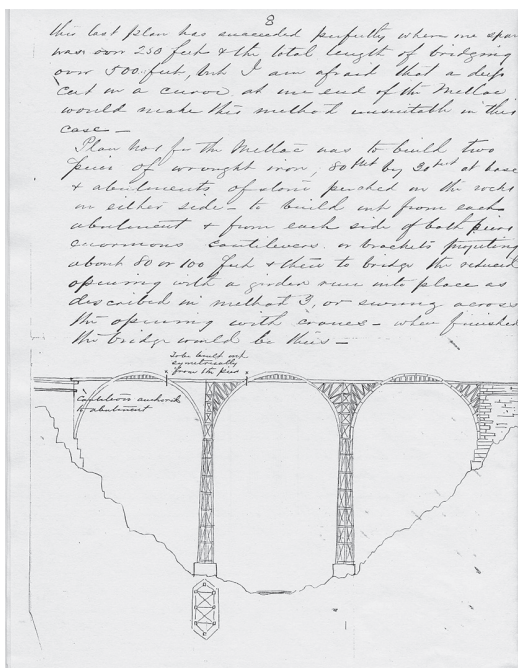 8
this last plan has succeeded perfectly where one span
was over 250 feet & the total length of bridging
over 500 feet, but I am afraid that a deep
cut on a curve at one end of the Mellac
would make this method unsuitable in this
case —
Plan No 5 for the Mellac was to build two
piers of wrought iron, 80 feet by 30 feet at base
& abutments of stone perched on the rocks
on either side — to build out from each
abutment & from each side of both piers
enormous cantilevers or brackets projecting
about 80 or 100 feet & then to bridge the reduced
opening with a girder run into place as
described in method 3, or swung across
the opening with cranes — when finished
the bridge would be this —
To be built out
symetrically
from the piers
Cantilevers anchored
to abutment